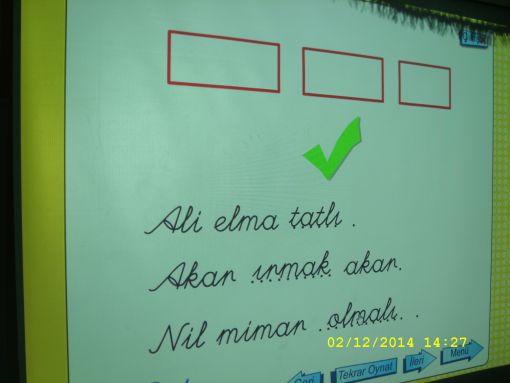 Ali elma tatlı .
Akan ırmak akan.
Nil mimar olmalı .
02/12/2014 14:27
Geri Tekrar Oynat İleri Menü